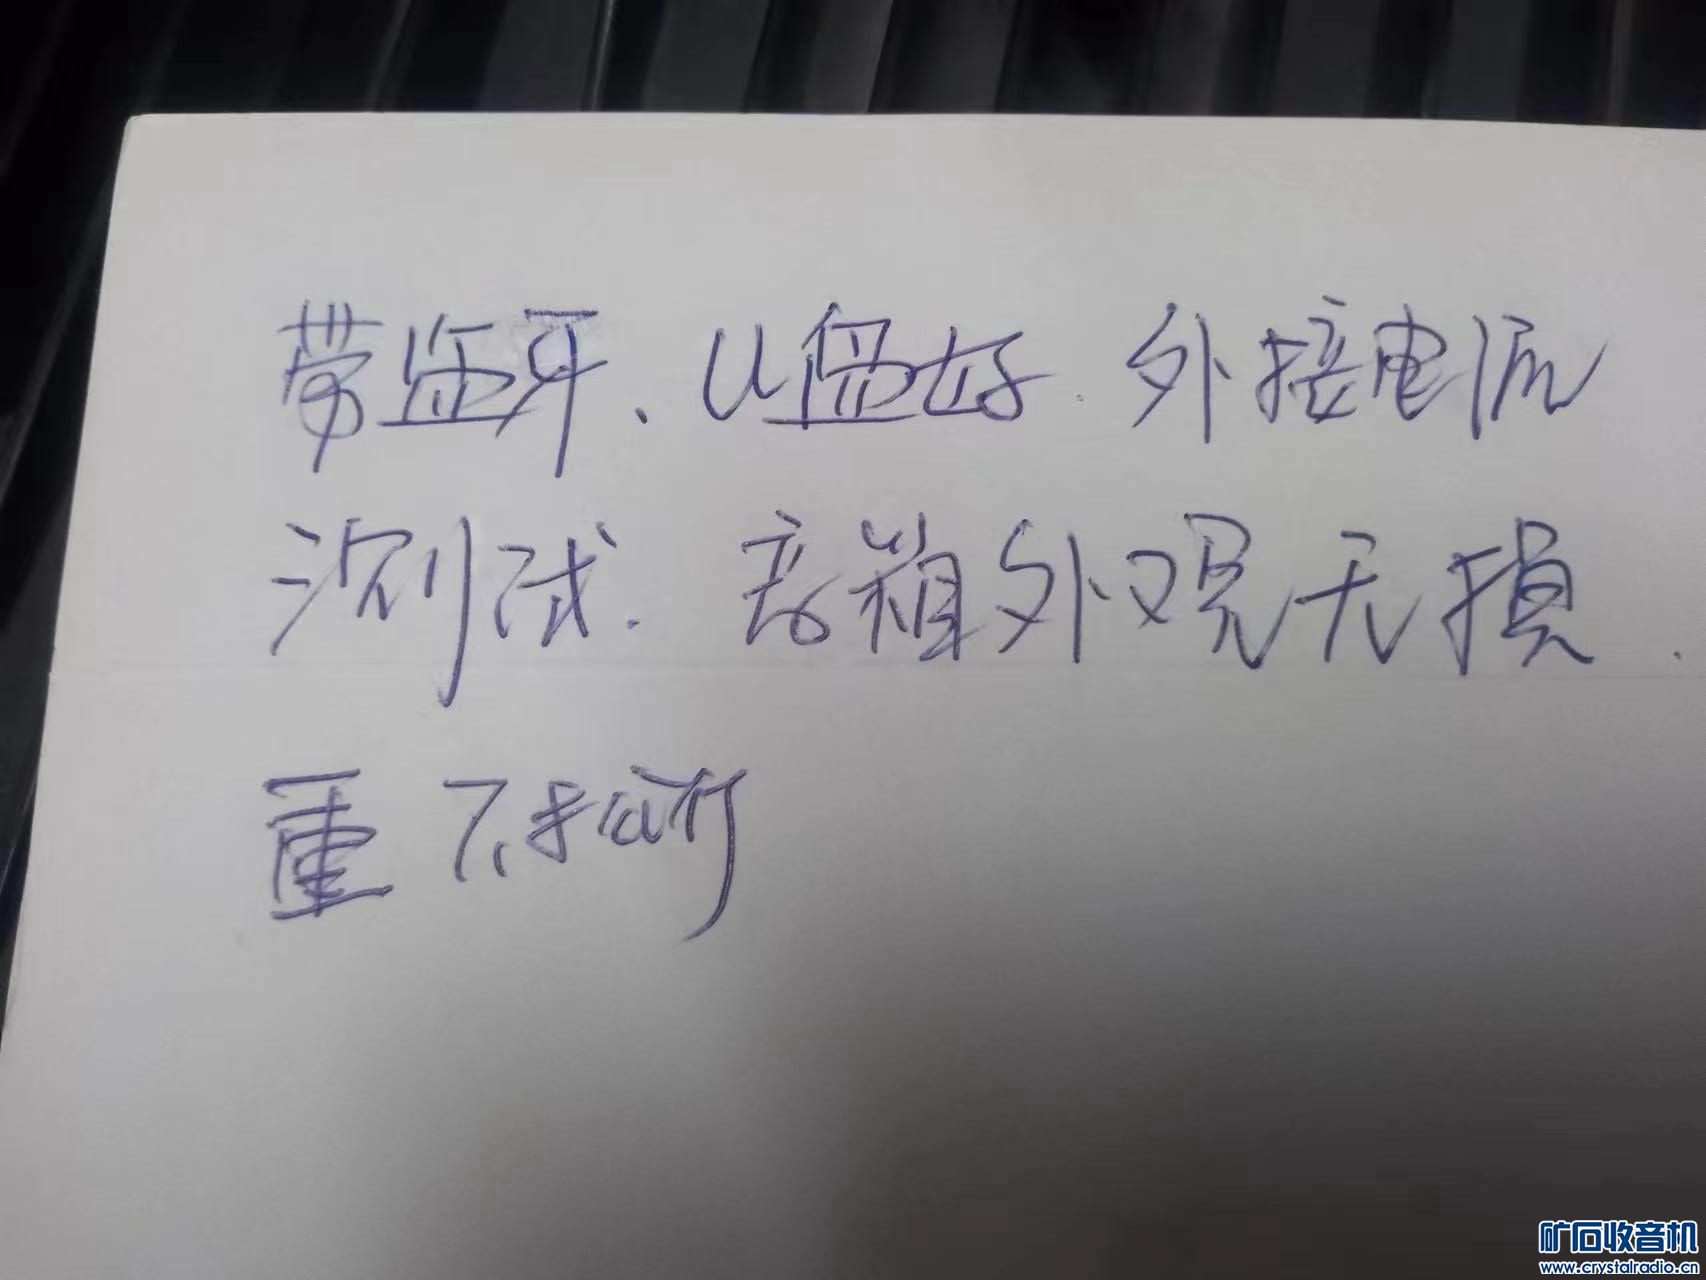 带蓝牙、U盘好.外接电源
测试.音箱外观无损.
重 7.5公斤
矿石收音机
www.crystalradio.cn